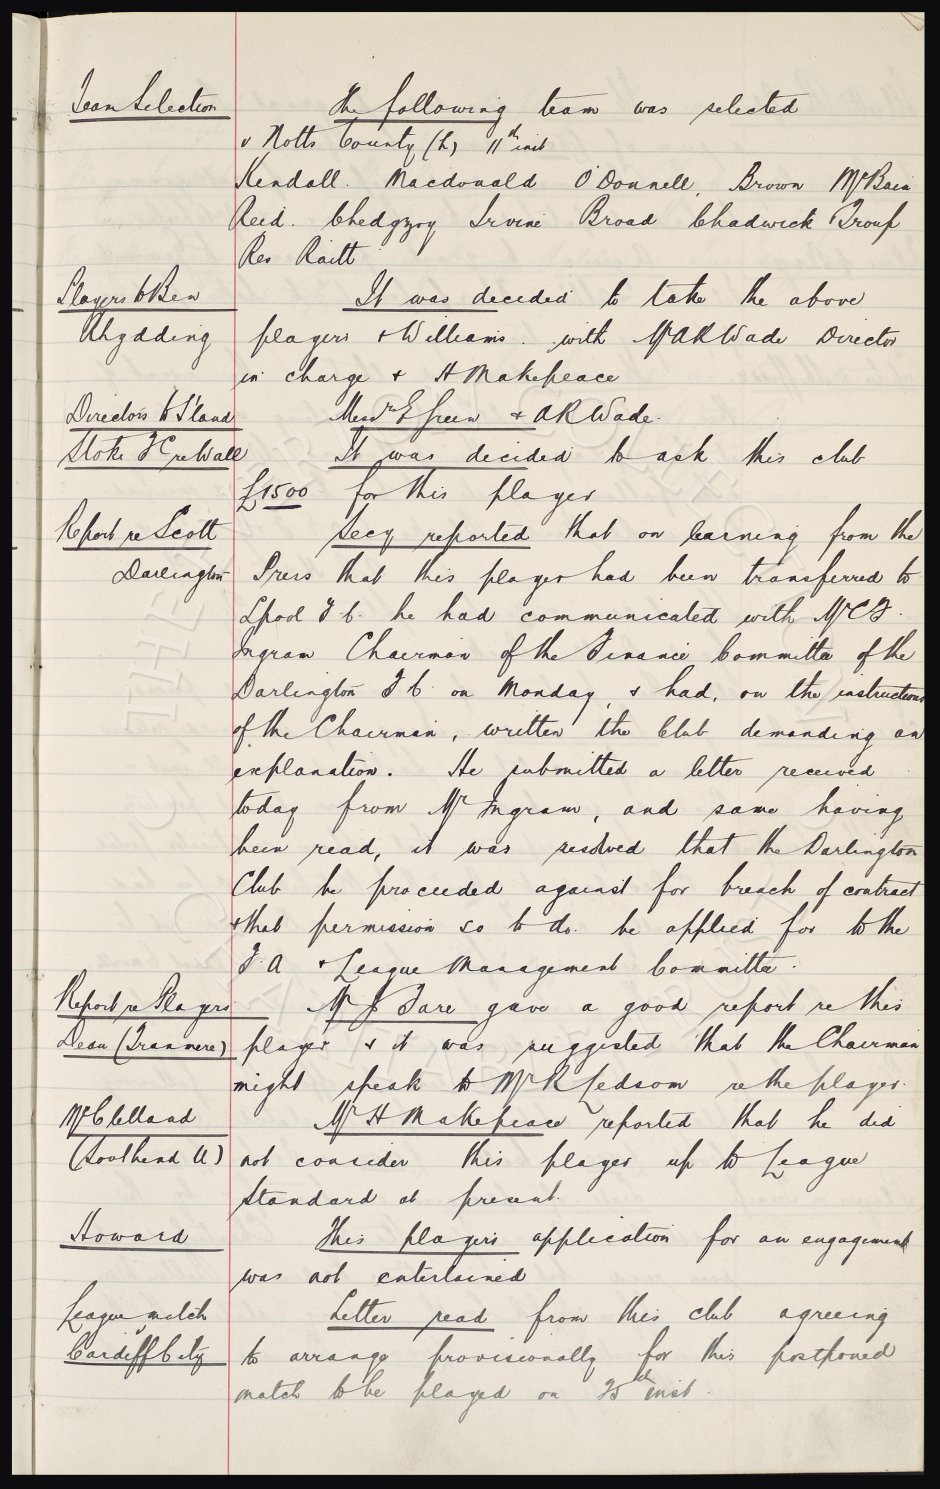 Team Selection The following team was selected
v Notts County (h) 11th inst
Kendall. Macdonald O'Donnell, Brown McBain
Reid. Chedgzoy Irvine Broad Chadwick & Troup
Res Raitt
Players to Ben It was decided to take the above
Rhydding players & Williams. with Mr A R Wade Director
in charge & H Makepeace
Directors to S'land Messrs E Green & A R Wade.
Stoke F C re Wall It was decided to ask this club
£1500 for this player
Report re Scott Secy reported that on learning from the
Darlington Press that this player had been transferred to
Lpool F C. he had communicated with Mr C F.
Ingram Chairman of the Finance Committee of the
Darlington F C. on Monday, & had, on the instructions
of the Chairman, written the Club demanding an
explanation. He submitted a letter received
today from Mr Ingram, and same having
been read, it was resolved that the Darlington
Club be proceeded against for breach of contract
& that permission so to do. be applied for to the
F. A & League Management Committee.
Report re Players Mr J Fare gave a good report re this
Dean (Tranmere) player & it was suggested that the Chairman
might speak to Mr R Ledsom re the player.
McClelland Mr H Makepeace reported that he did
(Southend U) not consider this player up to League
Standard at present.
Howard This players application for an engagement
was not entertained
League match Letter read from this club agreeing
Cardiff City to arrange provisionally for this postponed
match to be played on inst.